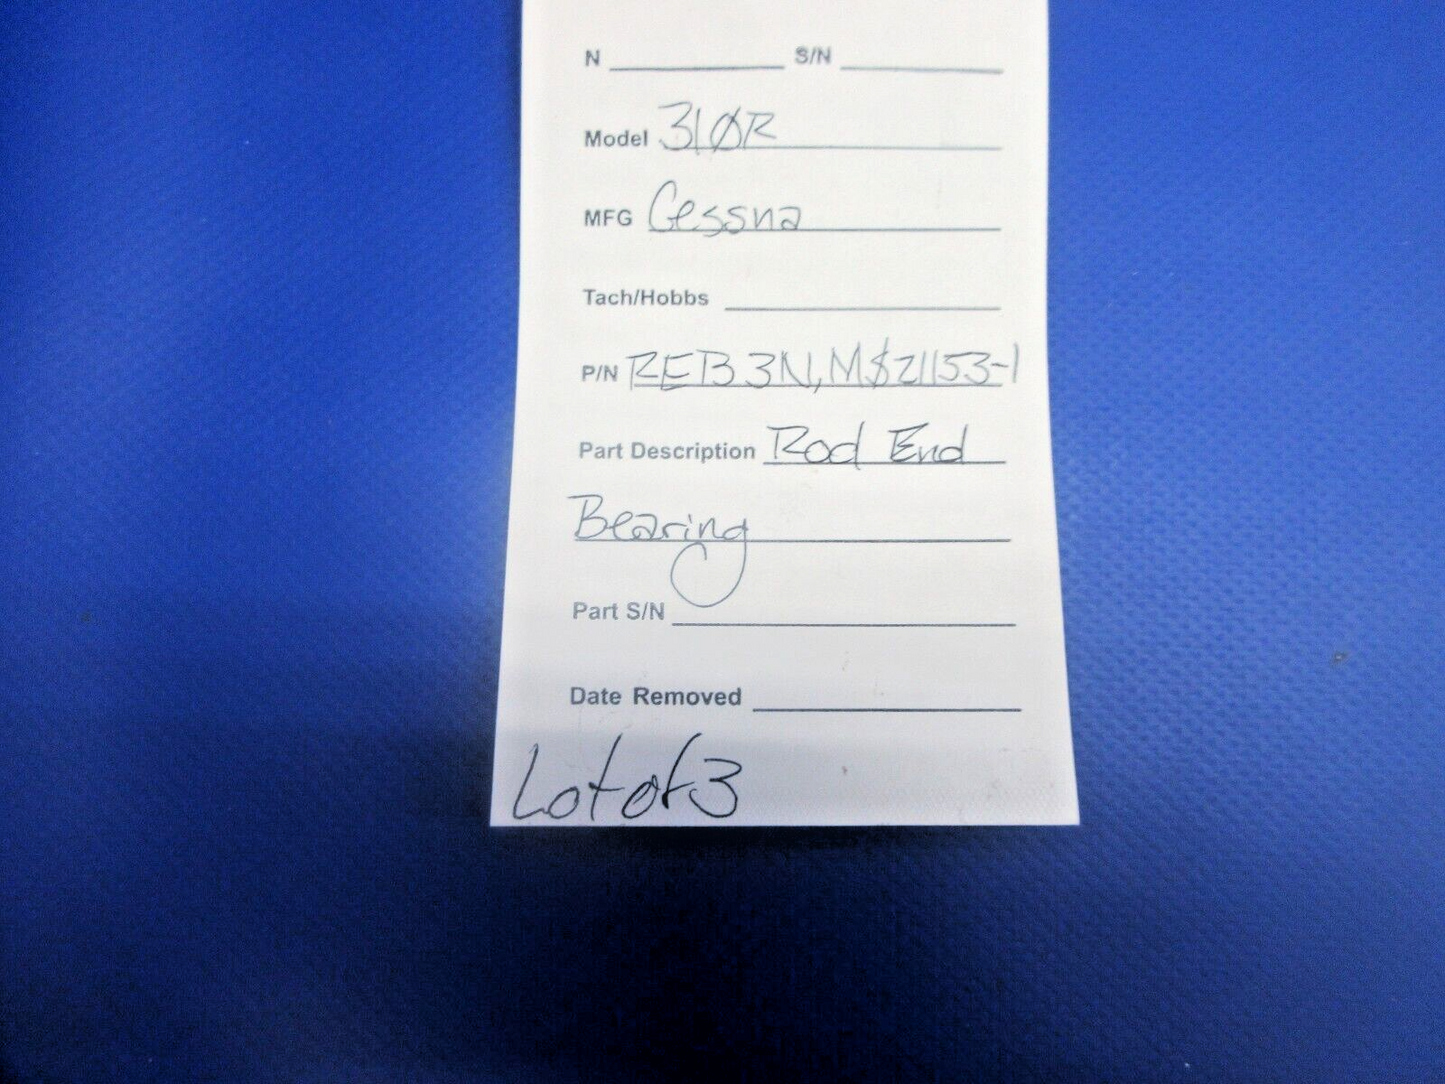 N S/N
Model 310R
MFG Cessna
Tach/Hobbs
P/N REB3N, MS21153-1
Part Description Rod End
Bearing
Part S/N
Date Removed
Lot of 3